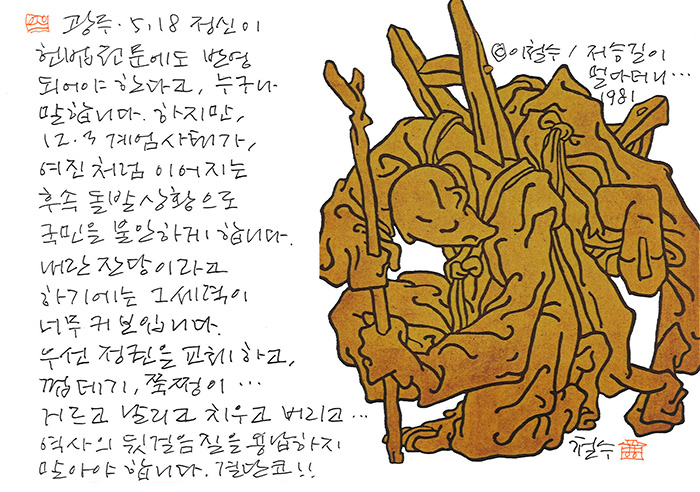 광주·5.18 정신이
헌법전문에도 반영
되어야 한다고, 누구나
말합니다. 하지만,
12·3 계엄사태가,
여진처럼 이어지는
후속 돌발상황으로
국민을 불안하게 합니다.
내란잔당이라고
하기에는 그세력이
너무 커보입니다.
우선 정권을 교체하고,
껍데기, 쭉쩡이 …
거르고 날리고 치우고 버리고…
역사의 뒷걸음질을 용납하지
말아야 합니다. 결단코!!
©이철수 / 저승길이
멀다더니…
1981
철수